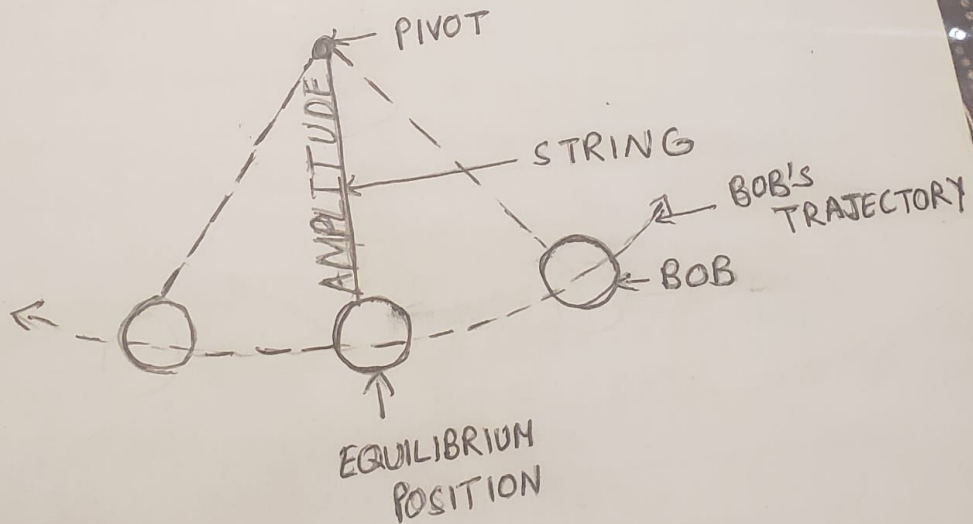 PIVOT
AMPLITUDE
STRING
BOB'S
TRAJECTORY
BOB
EQUILIBRIUM
POSITION